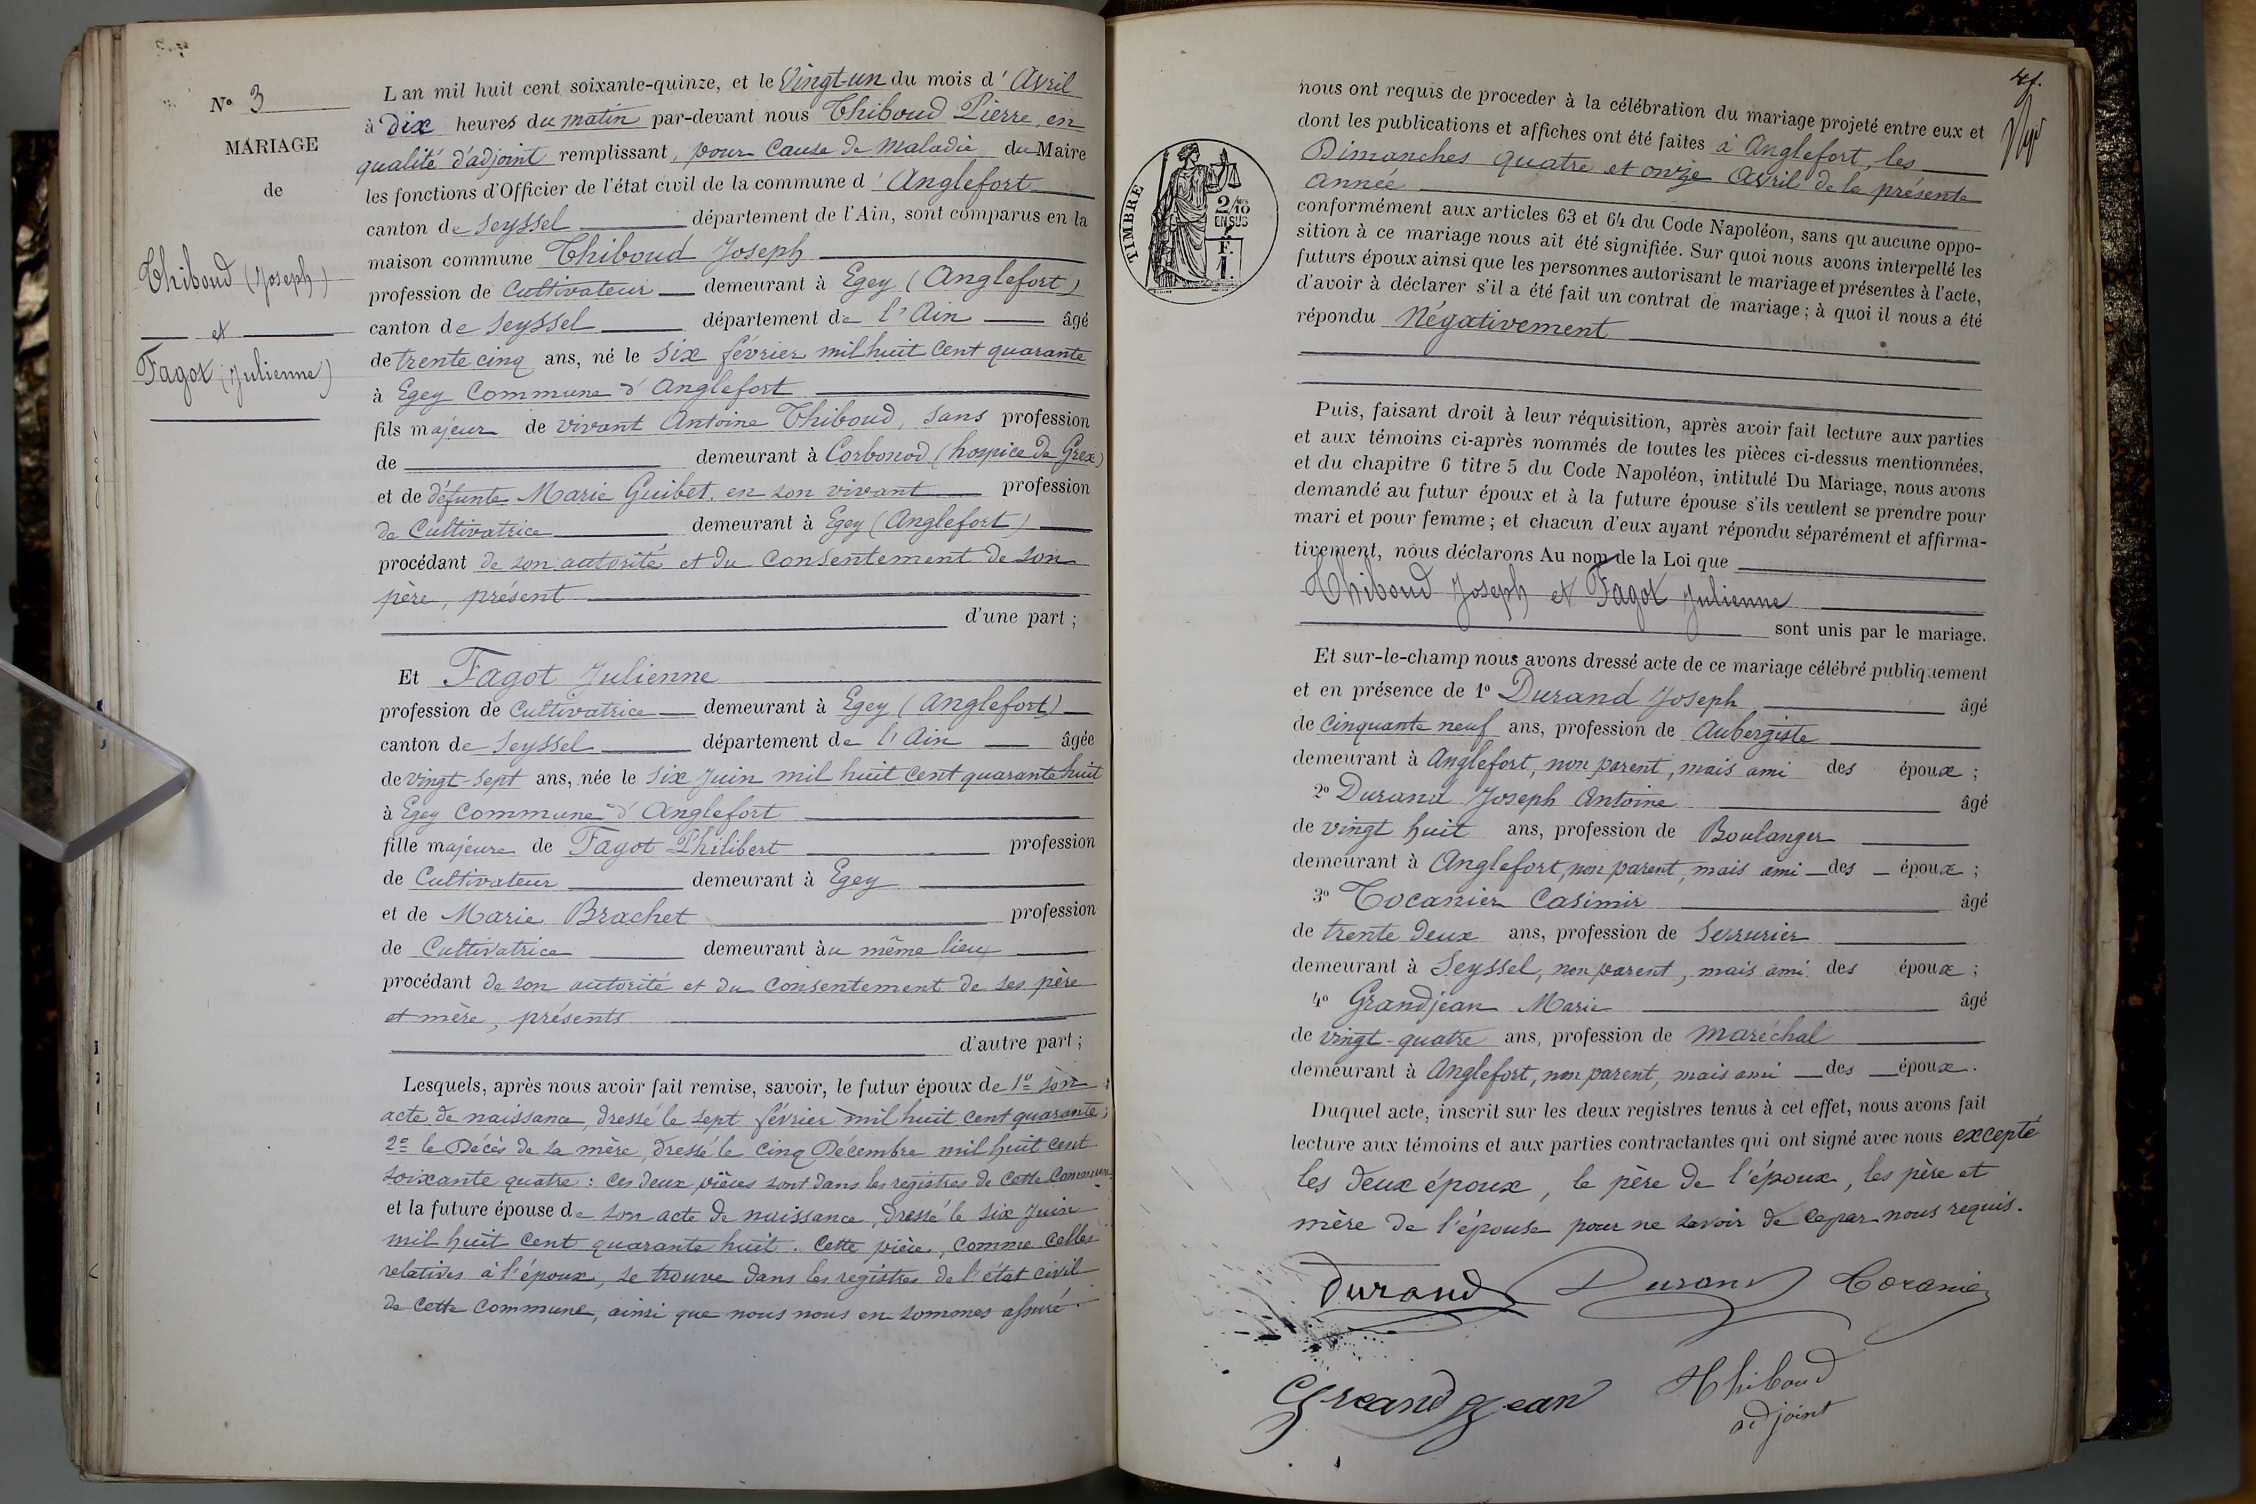 N° 3
MARIAGE
de
Thiboud (Joseph)
et
Fagot (Julienne)
L an mil huit cent soixante-quinze, et le Vingt-un du mois d' Avril
à Dix heures du matin par-devant nous Thiboud Pierre, en
qualité d'adjoint remplissant, pour Cause de Maladie du Maire
les fonctions d'Officier de l'état civil de la commune d' Anglefort
canton de Seyssel département de l'Ain, sont comparus en la
maison commune Thiboud Joseph
profession de Cultivateur demeurant à Egey (Anglefort)
canton de Seyssel département de l'Ain âgé
de trente cinq ans, né le six février mil huit cent quarante
à Egey Commune d'Anglefort
fils majeur de vivant Antoine Thiboud, sans profession
de demeurant à Corbonod (hospice de Grex)
et de défunte Marie Guibet, en son vivant profession
de Cultivatrice demeurant à Egey (Anglefort)
procédant de son autorité et du Consentement de son
père, présent
d'une part ;
Et Fagot Julienne
profession de Cultivatrice demeurant à Egey (Anglefort)
canton de Seyssel département de l'Ain âgée
de vingt-sept ans, née le six Juin mil huit cent quarante huit
à Egey Commune d'Anglefort
fille majeure de Fagot Philibert profession
de Cultivateur demeurant à Egey
et de Marie Brachet profession
de Cultivatrice demeurant àu même lieu
procédant de son autorité et du Consentement de ses père
et mère, présents
d'autre part ;
Lesquels, après nous avoir fait remise, savoir, le futur époux de 1° son
acte de naissance, dressé le sept février mil huit cent quarante ;
2° le Décès de sa mère, dressé le cinq Décembre mil huit cent
soixante quatre : ces deux pièces sont dans les registres de cette Commune
et la future épouse de son acte de naissance, dressé le six Juin
mil huit cent quarante huit. Cette pièce, comme celles
relatives à l'époux, se trouve dans les registres de l'état civil
de cette commune, ainsi que nous nous en sommes assuré.
nous ont requis de proceder à la célébration du mariage projeté entre eux et
dont les publications et affiches ont été faites à Anglefort, les
Dimanches quatre et onze Avril de la présente
année
conformément aux articles 63 et 64 du Code Napoléon, sans qu aucune oppo-
sition à ce mariage nous ait été signifiée. Sur quoi nous avons interpellé les
futurs époux ainsi que les personnes autorisant le mariage et présentes à l'acte,
d'avoir à déclarer s'il a été fait un contrat de mariage ; à quoi il nous a été
répondu Négativement
TIMBRE
2/10 EN SUS
F.
1.
Puis, faisant droit à leur réquisition, après avoir fait lecture aux parties
et aux témoins ci-après nommés de toutes les pièces ci-dessus mentionnées,
et du chapitre 6 titre 5 du Code Napoléon, intitulé Du Mariage, nous avons
demandé au futur époux et à la future épouse s'ils veulent se prendre pour
mari et pour femme ; et chacun d'eux ayant répondu séparément et affirma-
tivement, nous déclarons Au nom de la Loi que
Thiboud Joseph et Fagot Julienne
sont unis par le mariage.
Et sur-le-champ nous avons dressé acte de ce mariage célébré publiquement
et en présence de 1° Durand Joseph âgé
de cinquante neuf ans, profession de Aubergiste
demeurant à Anglefort, non parent, mais ami des époux ;
2° Durand Joseph Antoine âgé
de vingt huit ans, profession de Boulanger
demeurant à Anglefort, non parent, mais ami des époux ;
3° Tocanier Casimir âgé
de trente deux ans, profession de Serrurier
demeurant à Seyssel, non parent, mais ami des époux ;
4° Grandjean Marie âgé
de vingt-quatre ans, profession de Maréchal
demeurant à Anglefort, non parent, mais ami des époux.
Duquel acte, inscrit sur les deux registres tenus à cet effet, nous avons fait
lecture aux témoins et aux parties contractantes qui ont signé avec nous excepté
les deux époux, le père de l'époux, les père et
mère de l'épouse pour ne savoir de ce par nous requis.
Durand Durand Tocanier
Grandjean Thiboud
adjoint